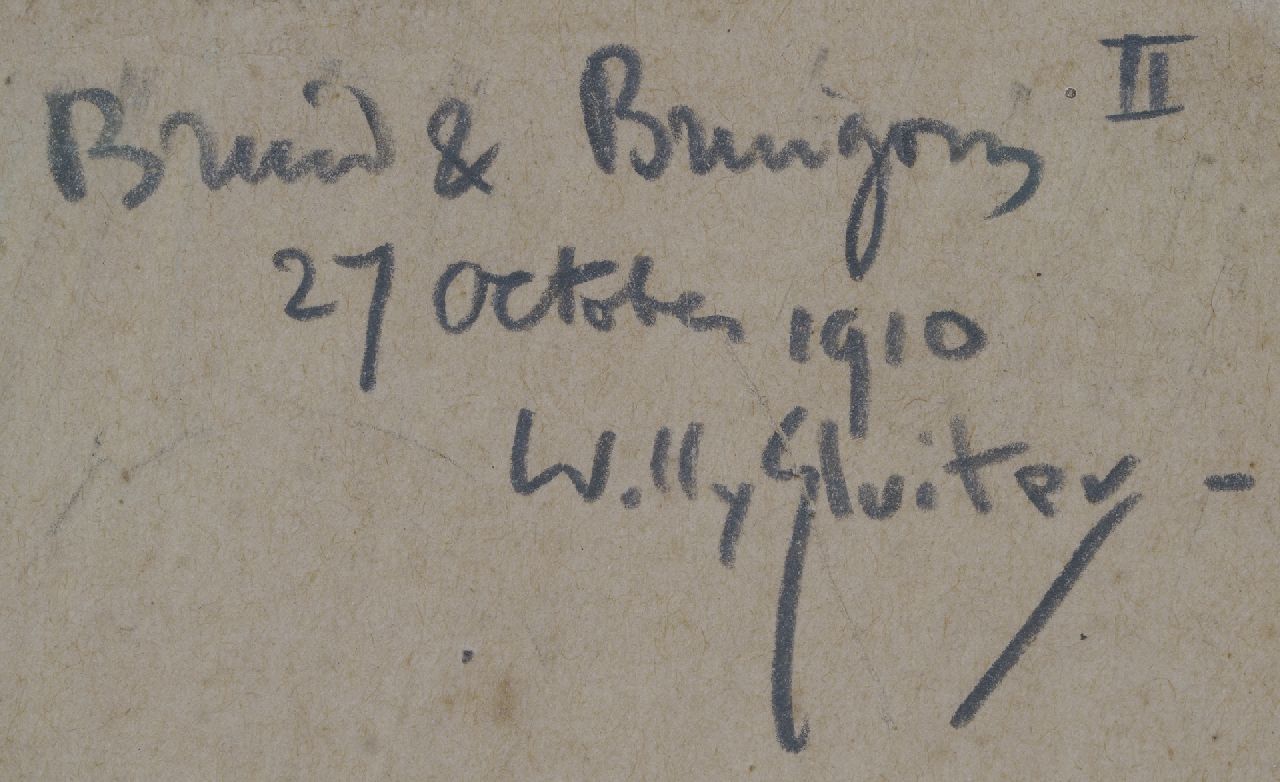 Bruid & Bruigom II
27 October 1910
Willy Sluiter -